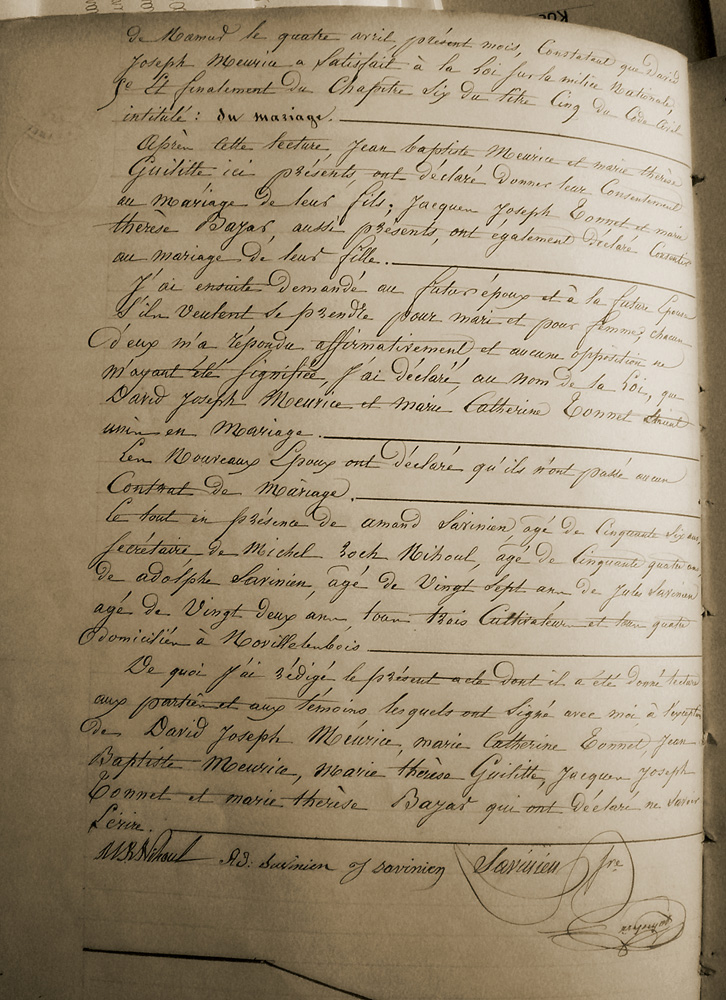 de Namur le quatre avril présent mois, Constatant que David
Joseph Meurice a Satisfait à la Loi sur la milice Nationale
5e Et finalement du Chapitre Six du titre Cinq du Code Civil
intitulé : du mariage.
Après cette lecture Jean baptiste Meurice et marie thérèse
Guilitte ici présents, ont déclaré donner leur Consentement
au mariage de leur fils; Jacques Joseph Tonnet et marie
thérèse Bazar aussi présents, ont également déclaré Consentir
au mariage de leur fille.
J'ai ensuite demandé au futur époux et à la future Epouse
S'ils veulent se prendre pour mari et pour femme, chacun
d'eux m'a répondu affirmativement et aucune opposition ne
m'ayant été signifiée, J'ai déclaré, au nom de la Loi, que
David Joseph Meurice et marie Catherine Tonnet étaient
unis en Mariage.
Les Nouveaux Epoux ont déclaré qu'ils n'ont passé aucun
Contrat de Mariage.
Le tout en présence de amand Savinien agé de Cinquante Six ans,
Secrétaire de Michel Roch Nihoul, agé de Cinquante quatre ans,
de adolphe Savinien, agé de Vingt sept ans de Jules Savinien
agé de Vingt deux ans tous trois Cultivateurs et tous quatre
domiciliés à Novillelesbois
De quoi J'ai rédigé le présent acte dont il a été donné lecture
aux parties et aux témoins lesquels ont Signé avec moi à l'exception
de David Joseph Meurice, marie Catherine Tonnet, Jean
Baptiste Meurice, Marie thérèse Guilitte, Jacques Joseph
Tonnet et marie thérèse Bazar qui ont déclaré ne Savoir
Ecrire.
MR Nihoul Ad: Savinien J Savinien Savinien Sre